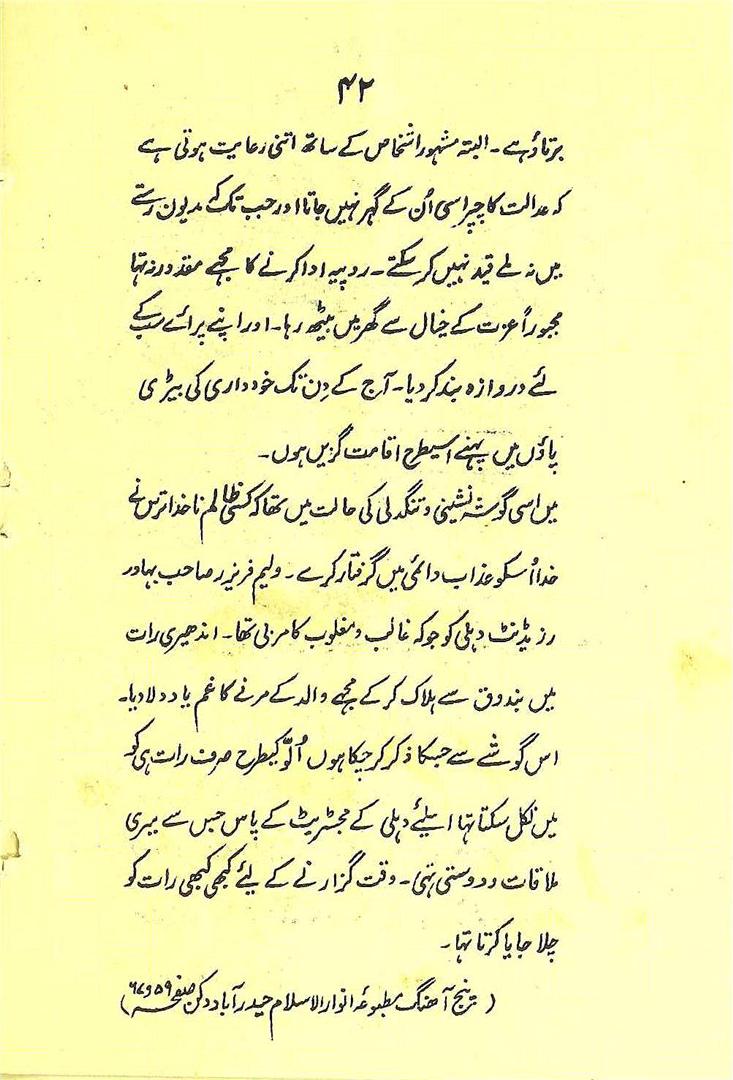 ۴۲
برتاؤ ہے۔ البتہ مشہور اشخاص کے ساتھ اتنی رعایت ہوتی ہے
کہ عدالت کا چپراسی اُن کے گہر نہیں جاتا اور جب تک کے مدیون رستے
میں نہ ملے قید نہیں کر سکتے۔ روپیہ ادا کرنے کا مجہے مقدور نہ تہا
مجبوراً عزت کے خیال سے گھر میں بیٹھ رہا۔ اور اپنے پرائے سب کے
لئے دروازہ بند کر دیا۔ آج کے دِن تک خودداری کی بیڑی
پاؤں میں پہنے اسیطرح اقامت گزیں ہوں۔
میں اسی گوشہ نشینی و تنگدلی کی حالت میں تھا کہ کسی ظالم نا خدا ترس نے
خدا اُسکو عذاب دائمی میں گرفتار کرے۔ ولیم فریزر صاحب بہادر
رزیڈنٹ دہلی کو جو کہ غالب و مغلوب کا مربی تھا۔ اندھیری رات
میں بندوق سے ہلاک کر کے مجہے والد کے مرنے کا غم یاد دلا دیا۔
اس گوشے سے جسکا ذکر کر چکا ہوں اُلّو کیطرح صرف رات ہی کو
میں نکل سکتا تہا اسلئے دہلی کے مجسٹریٹ کے پاس جس سے میری
ملاقات و دوستی تہی۔ وقت گزارنے کے لیئے کبھی کبھی رات کو
چلا جایا کرتا تہا۔
(پنج آھنگ مطبوعہ انوار الاسلام حیدرآباد دکن صفحہ ۵۹ و ۶۷)